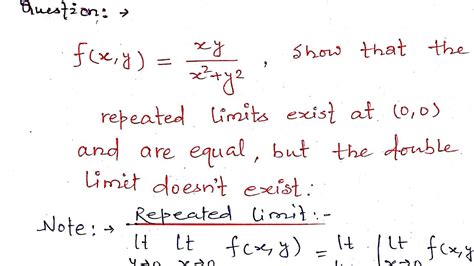 Question: →
f(x,y) = xy / x²+y² , show that the
repeated limits exist at (0,0)
and are equal, but the double
limit doesn't exist:
Note: → Repeated limit:-
lt lt f(x,y) = lt [lt f(x,y
y→0 x→0